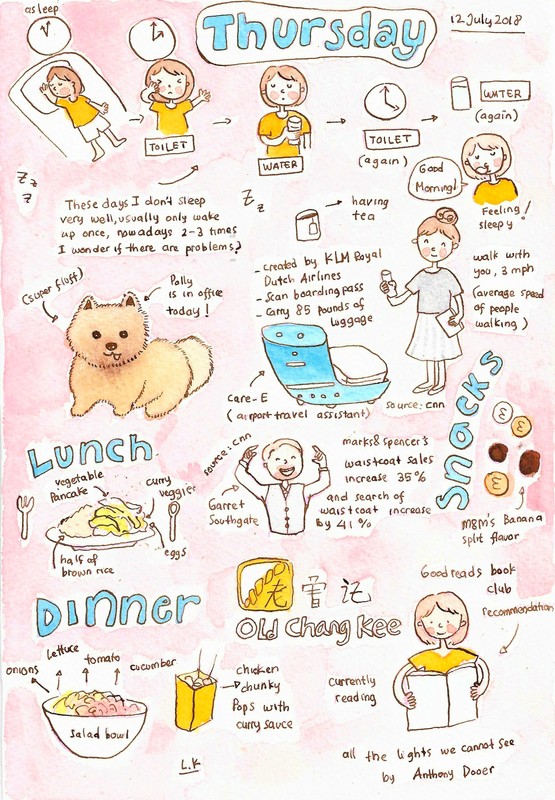 asleep
Thursday
12 July 2018
TOILET
WATER
TOILET
(again)
WATER
(again)
Good
Morning!
Feeling!
sleepy
z z
z
Zz
These days I don't sleep
very well, usually only wake
up once, nowadays 2-3 times
I wonder if there are problems?
having
tea
(super fluff)
Polly
is in office
today!
- created by KLM Royal
Dutch Airlines
- Scan boarding pass
- Carry 85 pounds of
luggage
walk with
you, 3 mph
(average speed
of people
walking)
care-E
(airport travel assistant)
source: cnn
Snacks
M&M's Banana
split flavor
Lunch
vegetable
Pancake
curry
veggies
half of
brown rice
eggs
source: cnn
Garret
Southgate
marks & spencer's
waistcoat sales
increase 35%
and search of
waistcoat increase
by 41%
DINNER
老曾记
Old Chang Kee
onions
lettuce
tomato
cucumber
salad bowl
chicken
chunky
Pops with
curry sauce
Goodreads book
club
recommendation
currently
reading
all the lights we cannot see
by Anthony Dooer
L.K